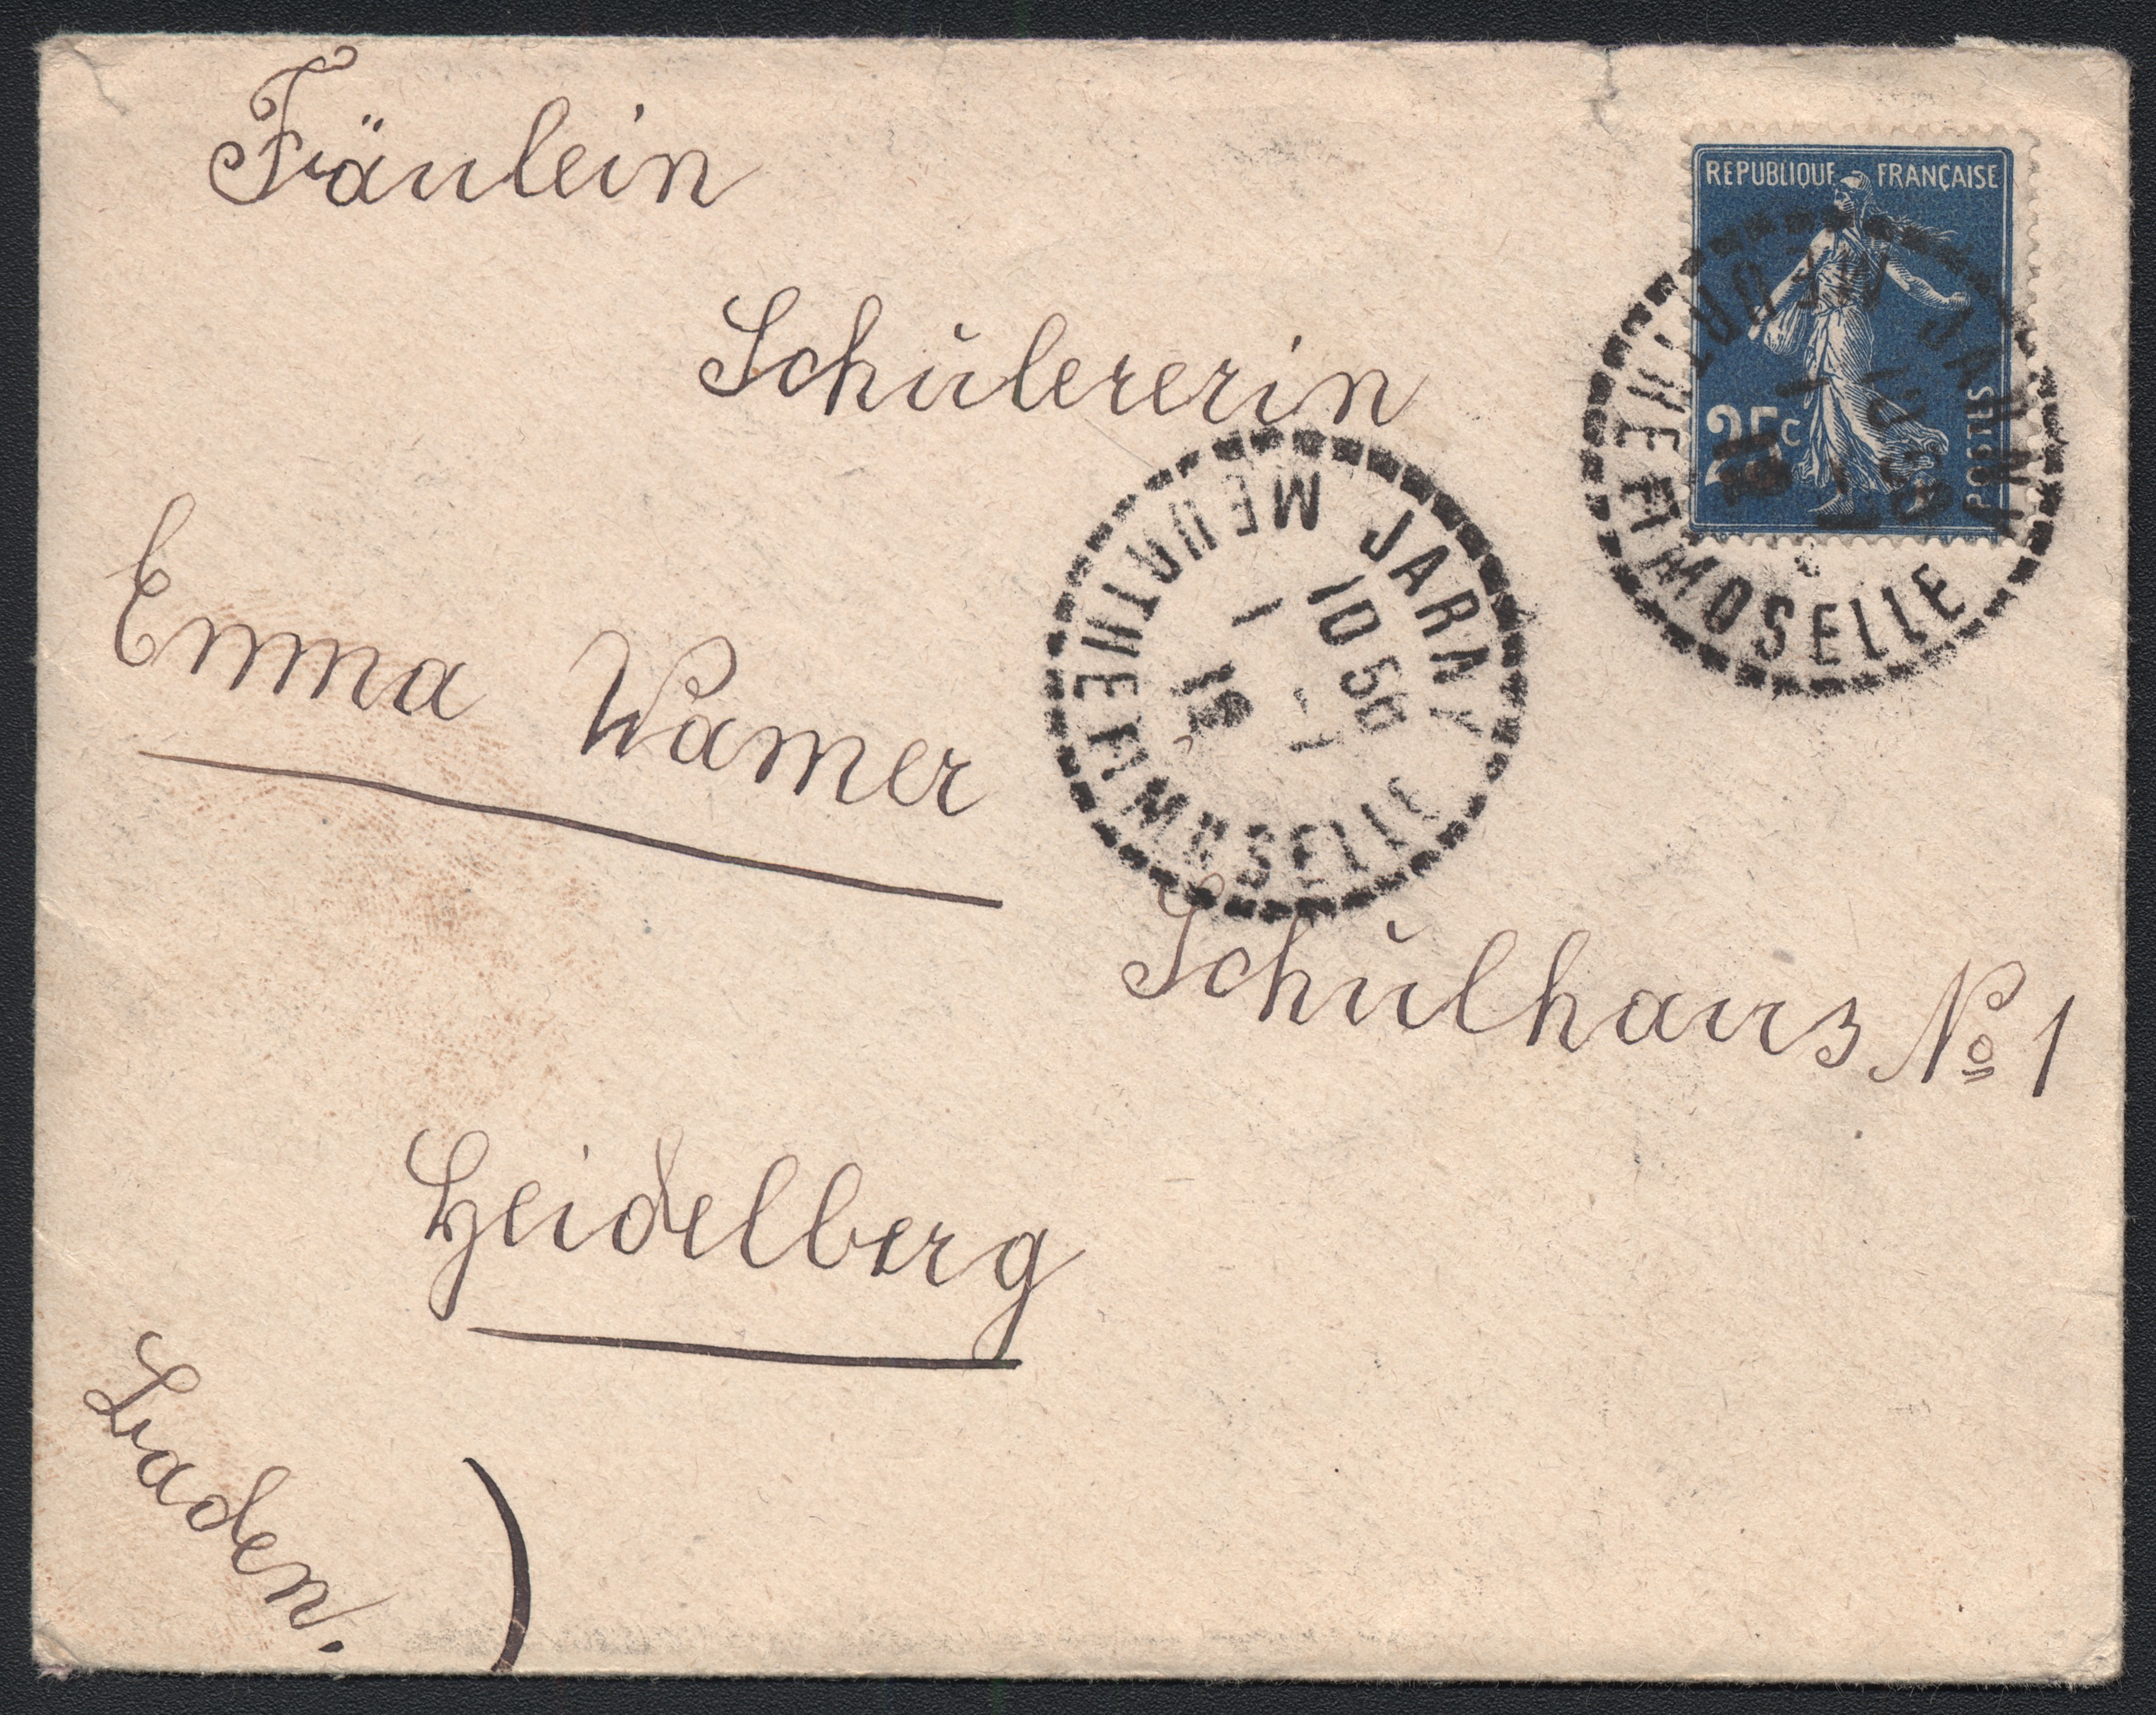 Fräulein
REPUBLIQUE FRANÇAISE
25c
POSTES
Schülererin
Emma Wamer
JARNY
MEURTHE ET MOSELLE
10 50
1
Schulhaus No 1
Heidelberg
Baden.
JARNY
MEURTHE ET MOSELLE